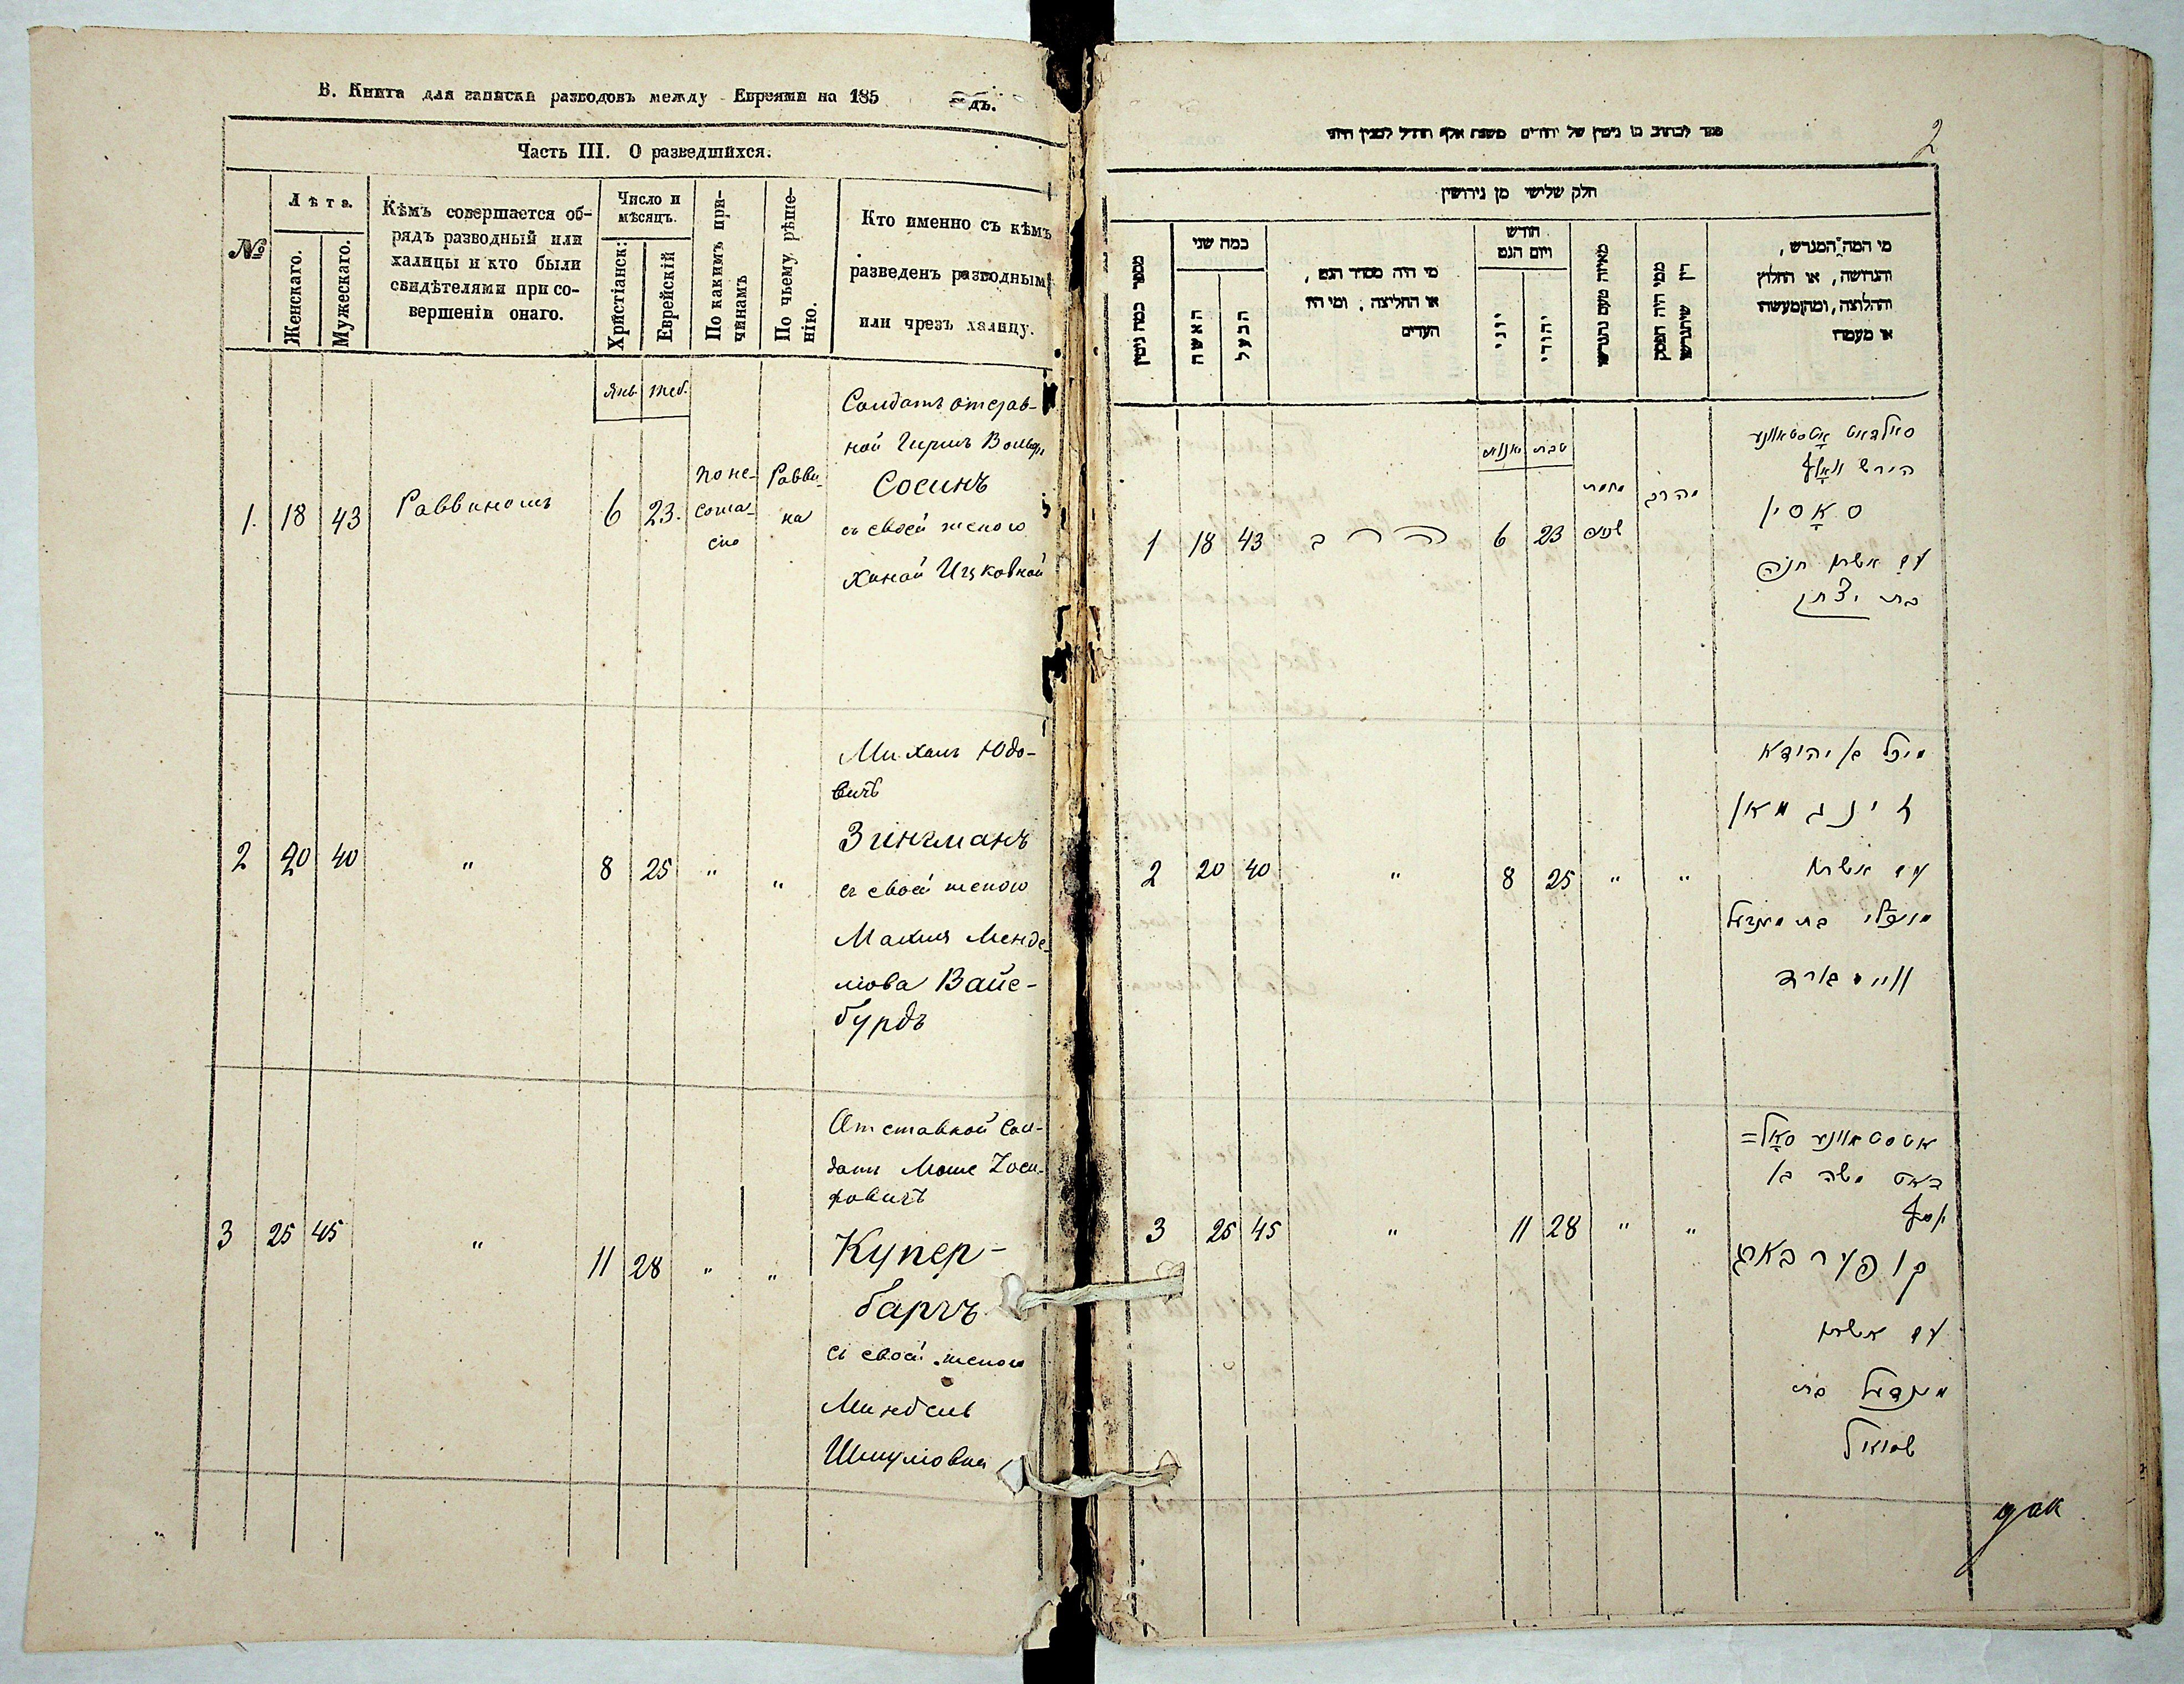 В. Книга для записки разводовъ между Евреями на 185 годъ.
Часть III. О разведшихся.
№
Лѣта.
Женскаго.
Мужескаго.
Кѣмъ совершается об-
рядъ разводный или
халицы и кто были
свидѣтелями при со-
вершеніи онаго.
Число и
мѣсяцъ.
Христіанск:
Еврейскій
По какимъ при-
чинамъ
По чьему рѣше-
нію.
Кто именно съ кѣмъ
разведенъ разводнымъ
или чрезъ халицу.
Янв. Теб.
1. 18 43 Раввиномъ 6 23.
по не-
согла-
сію
Равви-
на
Солдатъ отстав-
ной Гиршъ Вольф.
Сосинъ
съ своей женою
Ханой Ицковной
2 20 40 " 8 25 " "
Михель Юдо-
вичъ
Зингманъ
съ своей женою
Малия Менде-
лова Вайс-
бурдъ
3 25 45 " 11 28 " "
Отставной Сол-
датъ Моше Іоси-
фовичъ
Купер-
баргъ
съ своей женою
Миндель
Шмулювна
2
ספר לכתוב בו גיטין של יהודים משנת אלף תת״ל למנין היוני
חלק שלישי מן גירושין
מספר כמה גיטין
כמה שני
האשה
הבעל
מי היה מסדר הגט,
או החליצה, ומי היו
העדים
חודש
ויום הגט
יוני
יהודי
מאיזה טעם נתגרשו
ממי היה הפסק
דין שיתגרשו
מי המה המגרש,
והגרושה, או החלוץ
והחלוצה, ומה מעשהו
או מעמדו
יאנואר טבת
1 18 43 הרב 6 23
מחמת
שנאה
מהרב
סאלדאט אָטסטאוונע
הירש וואָלף
סאָסין
עם אשתו חנה
בת יצחק
2 20 40 " 8 25 " "
מיכל בן יהודא
זינגמאן
עם אשתו
מאליא בת מענדיל
ווייסבורד
3 25 45 " 11 28 " "
אטסטאוונע סאָל=
דאט משה בן
יוסף
קופערבארג
עם אשתו
מינדיל בת
שמואל